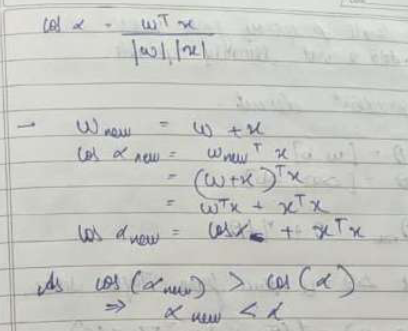 cos α = wᵀx / |w|.|x|
→ w_new = w + x
cos α_new = w_newᵀ x
= (w+x)ᵀx
= wᵀx + xᵀx
cos α_new = cos α + xᵀx
As cos(α_new) > cos(α)
⇒ α_new < α